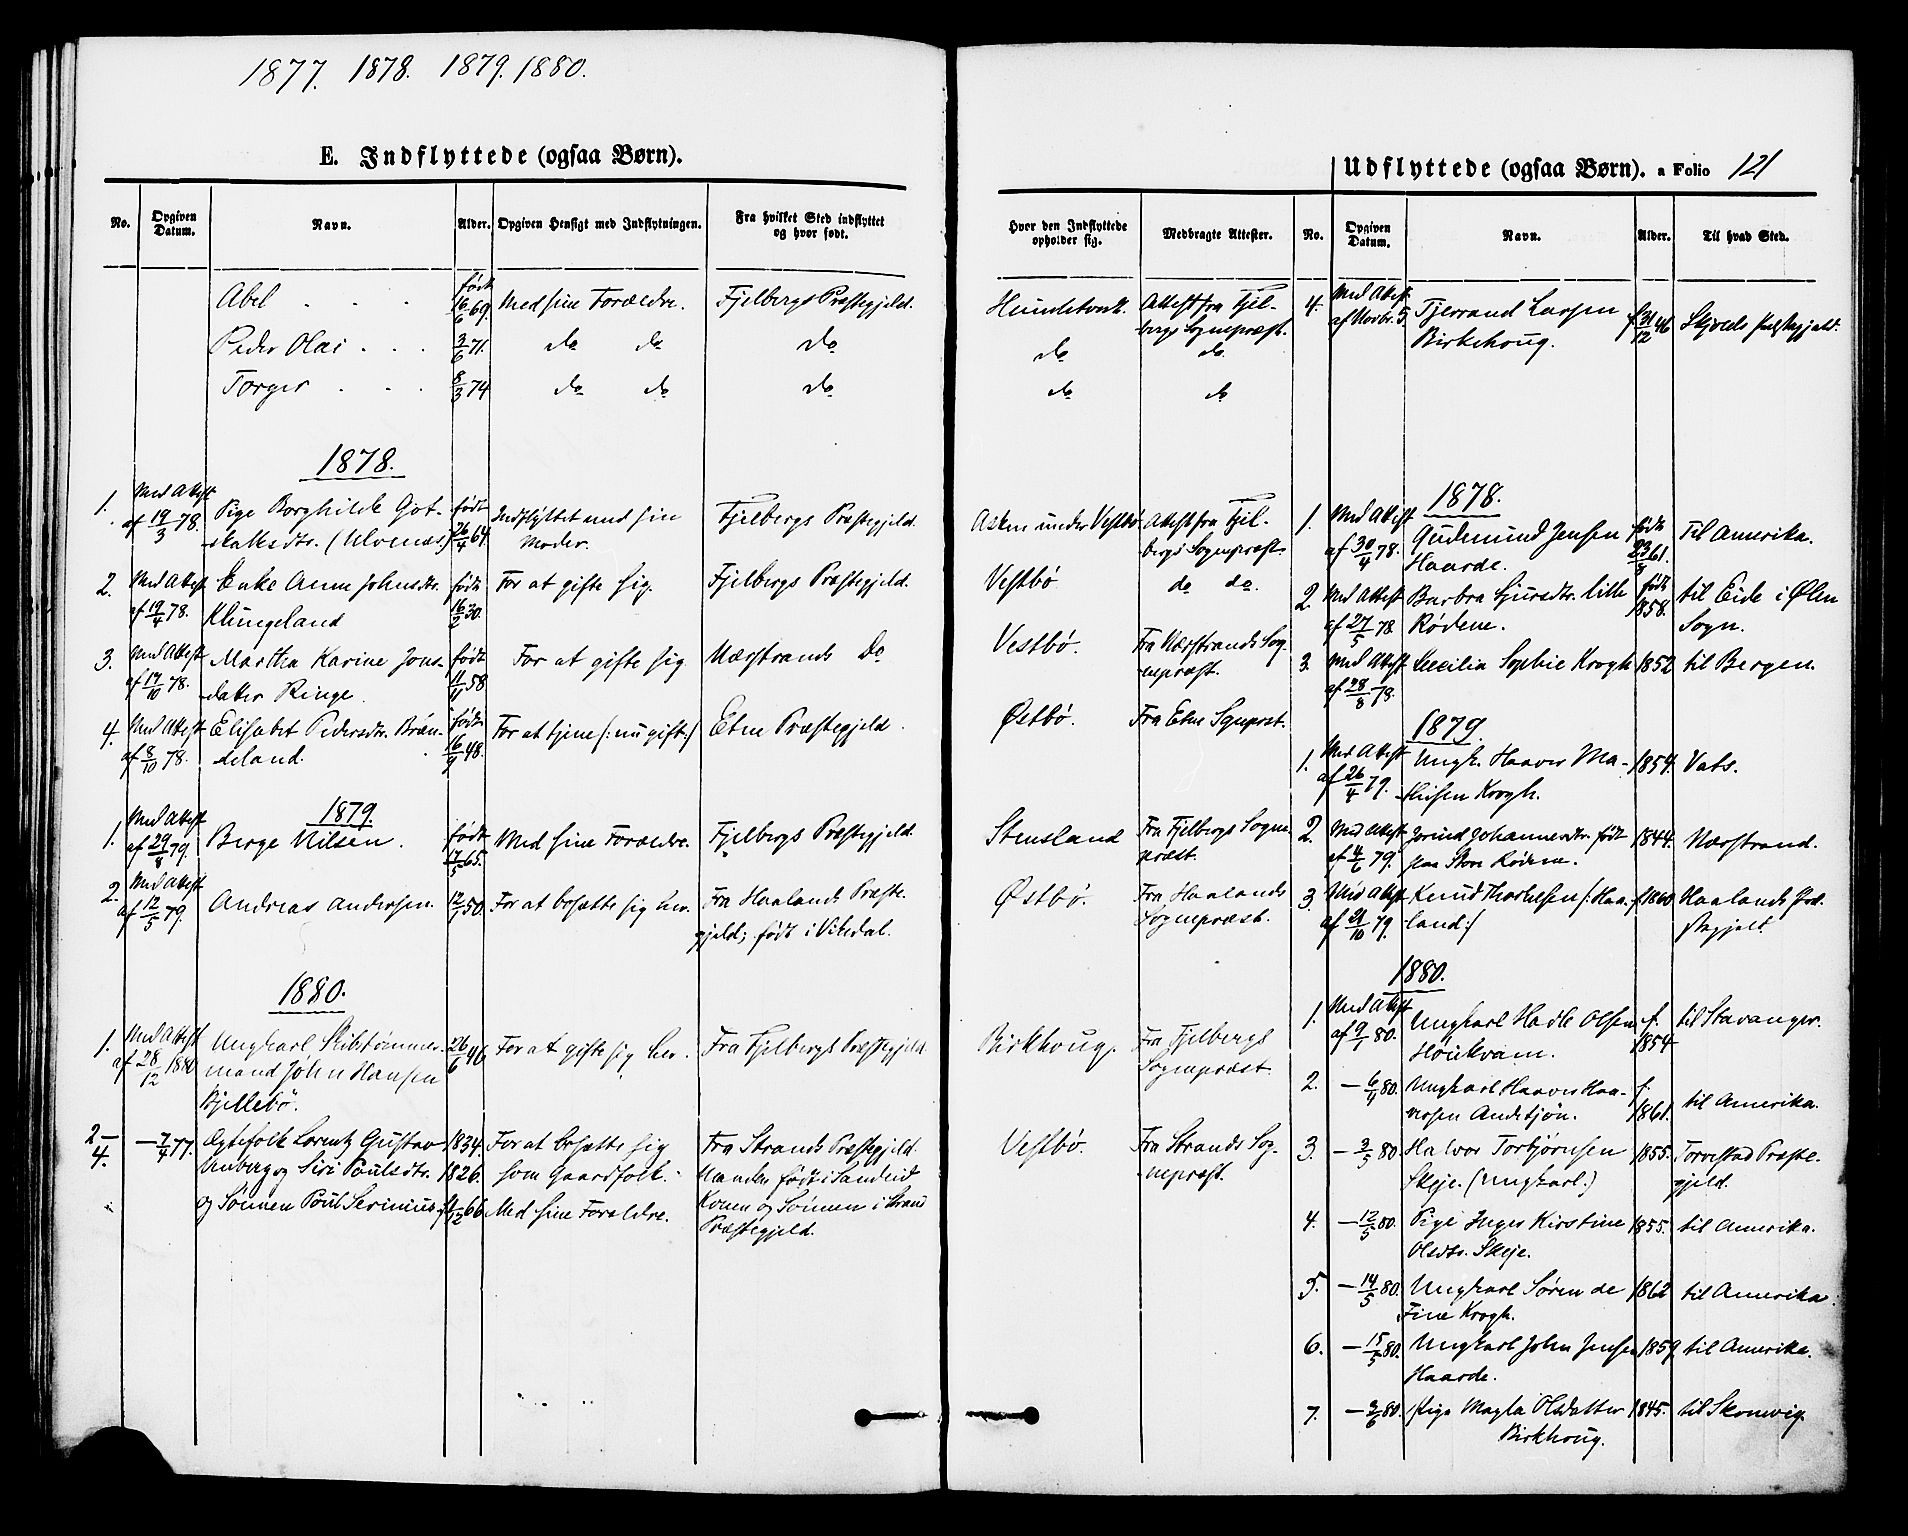 1877. 1878. 1879. 1880.
E. Indflyttede (ogsaa Børn).
No. Opgiven Datum. Navn. Alder. Opgiven Hensigt med Indflytningen. Fra hvilket Sted indflyttet og hvor født.
Abel . . . født 16/6 69. Med sine Forældre. Fjelbergs Præstegjeld.
Peder Olai . . . 3/6 71. do do do
Torger . . . 8/3 74 do do do
1878.
1. Med Attest Pige Borghilde Got- født Indflyttet med sin Fjelbergs Præstegjeld.
af 19/3 78. skalksdtr. (Ulvenæs) 26/4 64. Moder.
2. Med Attest Enke Anne Johnsdtr. født For at gifte sig. Fjelbergs Præstegjeld.
af 19/4 78. Klungeland 16/2 30.
3. Med Attest Martha Karine Jons- født For at gifte sig Nærstrands Do
af 14/10 78. datter Ringe. 11/11 58
4. Med Attest Elisabet Pedersdtr. Bræn- født For at tjene (: nu gift :) Etne Præstegjeld.
af 8/10 78. deland. 16/9 48.
1879.
1. Med Attest Berge Nilsen. født Med sine Forældre. Fjelbergs Præstegjeld.
af 29/8 79. 17/5 65.
2. Med Attest Andreas Andersen. 12/1 50. For at bosætte sig her. Fra Haalands Præste-
af 12/5 79. gjeld; født i Vikedal.
1880.
1. Med Attest Ungkarl Skibstømmer- 26/6 46 For at gifte sig her. Fra Fjelbergs Præstegjeld.
af 28/12 mand John Hansen
Bjellebø.
2-4. — 7/4 77. Ægtefolk Lorentz Gustav 1834. For at bosætte sig Fra Strands Præstegjeld.
Unberg og Siri Poulsdtr. 1826. som Gaardfolk. Manden født i Sandeid
og Sønnen Poul Serinius f 4/12 66 Med sine Forældre. Konen og Sønnen i Strand
Præstegjeld.
Udflyttede (ogsaa Børn). a Folio 121
Hvor den Indflyttede opholder sig. Medbragte Attester. No. Opgiven Datum. Navn. Alder. Til hvad Sted.
Hundetvedt. Attest fra Fjel- 4. Med Attest Tjerrand Larsen f 31/12 46 Skjolds Præstegjeld.
bergs Sognepræst. af Novbr. 5. Birkehoug.
do do
do do
1878.
Asken under Vestbø Attest fra Fjel- 1. Med Attest Gudmund Jensen født Til Amerika.
bergs Sognepræst. af 30/4 78. Haarde. 23/8 61.
Vestbø do do. 2. Med Attest Barbra Sjursdtr. lille født til Eide i Ølen
af 27/5 78 Rødene. 1858. Sogn.
Vestbø. Fra Nærstrands Sog- 3. Med Attest Cecilia Sophie Krogh 1852 til Bergen.
nepræst. af 28/8 78.
Østbø. Fra Etne Sgnprst.
1879.
1. Med Attest Ungk. Haaver Ma- 1854. Vats.
af 26/4 79. thisen Krogh.
Stensland Fra Fjelbergs Sogne- 2. Med Attest Jorind Johannesdtr. født 1844. Nærstrand.
præst. af 4/6 79. paa Store Rødene.
Østbø. Fra Haalands 3. Med Attest Knud Thorkelsen (: Haa- f 1860 Haalands Præ-
Sognepræst. af 21/10 79. land :) stegjeld.
1880.
1. Med Attest Ungkarl Hadle Olsen f. til Stavanger.
af 9/1 80. Høiekvam. 1854
Birkhoug. Fra Fjelbergs
Sognepræst.
2. — 6/4 80. Ungkarl Haaver Haa- f. til Amerika.
versen Andetjøn. 1861.
Vestbø. Fra Strands Sog- 3. — 3/5 80 Halvor Torbjørnsen 1855. Torvestad Præste-
nepræst. Skeje. (Ungkarl.) gjeld.
4. — 12/5 80. Pige Inger Kirstine 1855. til Amerika.
Olsdtr. Skeje.
5. — 14/5 80. Ungkarl Søren de 1862 til Amerika.
Fine Krogh.
6. — 15/5 80. Ungkarl John Jensen 1859. til Amerika.
Haarde.
7. — 2/6 80. Pige Magla Olsdatter 1845. til Skonevig.
Birkhoug.